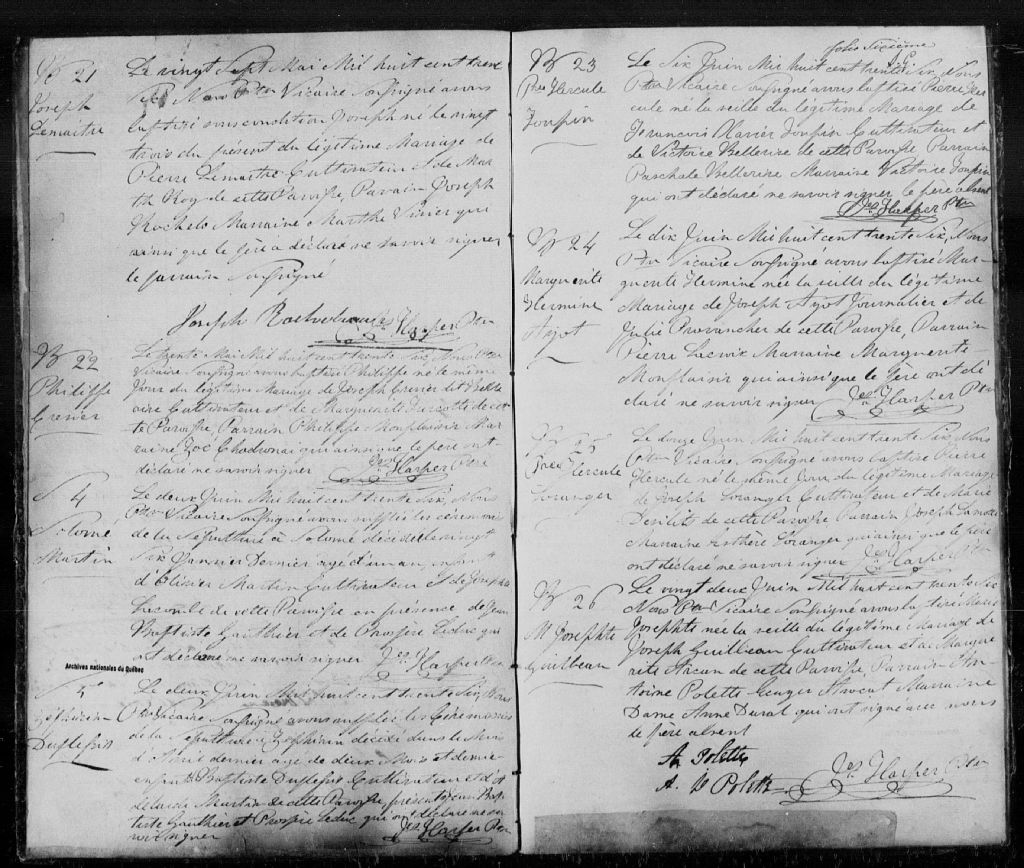 B 21
Joseph
Lemaitre
Le vingt Sept Mai Mil huit cent trente
Six Nous Ptre Vicaire Soussigné avons
baptisé sous condition Joseph né le vingt
trois du présent du légitime Mariage de
Pierre Lemaitre Cultivateur et de Mar
the Roy de cette Paroisse, Parain Joseph
Rochelo Marraine Marthe qui
ainsi que le Père a déclaré ne savoir signer
le parrain Soussigné
Joseph
Jos Harper Ptre
B 22
Philippe
Grenier
Le trente Mai Mil huit cent trente Six, Nous Ptre
Vicaire Soussigné avons baptisé Philippe né le même
jour du légitime Mariage de Joseph Grenier dit
Cultivateur et de Marguerite Turcotte de cet
te Paroisse, Parrain Philippe Monplaisir Mar
raine Zoé qui ainsi que le père ont
déclaré ne savoir signer Jos Harper Ptre
S 4
Solomé
Martin
Le deux Juin Mil huit cent trente Six, Nous
Ptre Vicaire Soussigné avons suppléé les cérémonies
de la Sépulture à Solomé décédé le vingt
Six Janvier Dernier agé d'un an, enfant
d'Olivier Martin Cultivateur et de Josephte
Lacombe de cette Paroisse en présence de Jean
Baptiste Gauthier et de Prospère Leduc qui
ont déclaré ne savoir signer Jos Harper Ptre
Archives nationales du Québec
S 5
Zéphirin
Duplessis
Le deux Juin Mil huit cent trente Six Nous
Ptre Vicaire Soussigné avons suppléé les Cérémonies
de la Sépulture à Zéphirin décédé dans le Mois
d'Avril dernier agé de deux Mois et demi
enfant de Baptiste Duplessis Cultivateur et d
Martin de cette Paroisse, présents Jean Bap
tiste Gauthier et Prospère Leduc qui ont déclaré ne sa
voir signer Jos Harper Ptre
folio Sixième
B 23
Pre Hercule
Toupin
Le Six Juin Mil huit cent trente Six, Nous
Ptre Vicaire Soussigné avons baptisé Pierre Her
cule né la veille du légitime Mariage de
François Xavier Toupin Cultivateur et
de Victoire Bellerive de cette Paroisse Parrain
Paschale Bellerive Marraine Victoire Toupin
qui ont déclaré ne savoir signer le père absent
Jos Harper Ptre
B 24
Marguerite
Hermine
Ayot
Le dix Juin Mil huit cent trente Six, Nous
Ptre Vicaire Soussigné avons baptisé Mar-
guerite Hermine née la veille du légitime
Mariage de Joseph Ayot Journalier et de
Julie Provancher de cette Paroisse, Parrain
Pierre Lacroix Marraine Marguerite
Monplaisir qui ainsi que le Père ont dé
claré ne savoir signer Jos Harper Ptre
B 25
Pre Hercule
Loranger
Le douze Juin Mil huit cent trente Six Nous
Ptre Vicaire Soussigné avons baptisé Pierre
Hercule né le même jour du légitime Mariage
de Joseph Loranger Cultivateur et de Marie
de cette Paroisse Parrain Joseph
Marraine Esthère Loranger qui ainsi que le Père
ont déclaré ne savoir signer Jos Harper Ptre
B 26
M Josephte
Guilbeau
Le vingt deux Juin Mil huit cent trente Six
Nous Ptre Vicaire Soussigné avons baptisé Marie
Josephte née la veille du légitime Mariage de
Joseph Guilbeau Cultivateur et de Margue
rite de cette Paroisse, Parrain An
toine Polette Ecuyer Avocat Marraine
Dame Anne Dural qui ont signé avec nous
le Père absent
An Polette
A. D Polette
Jos Harper Ptre